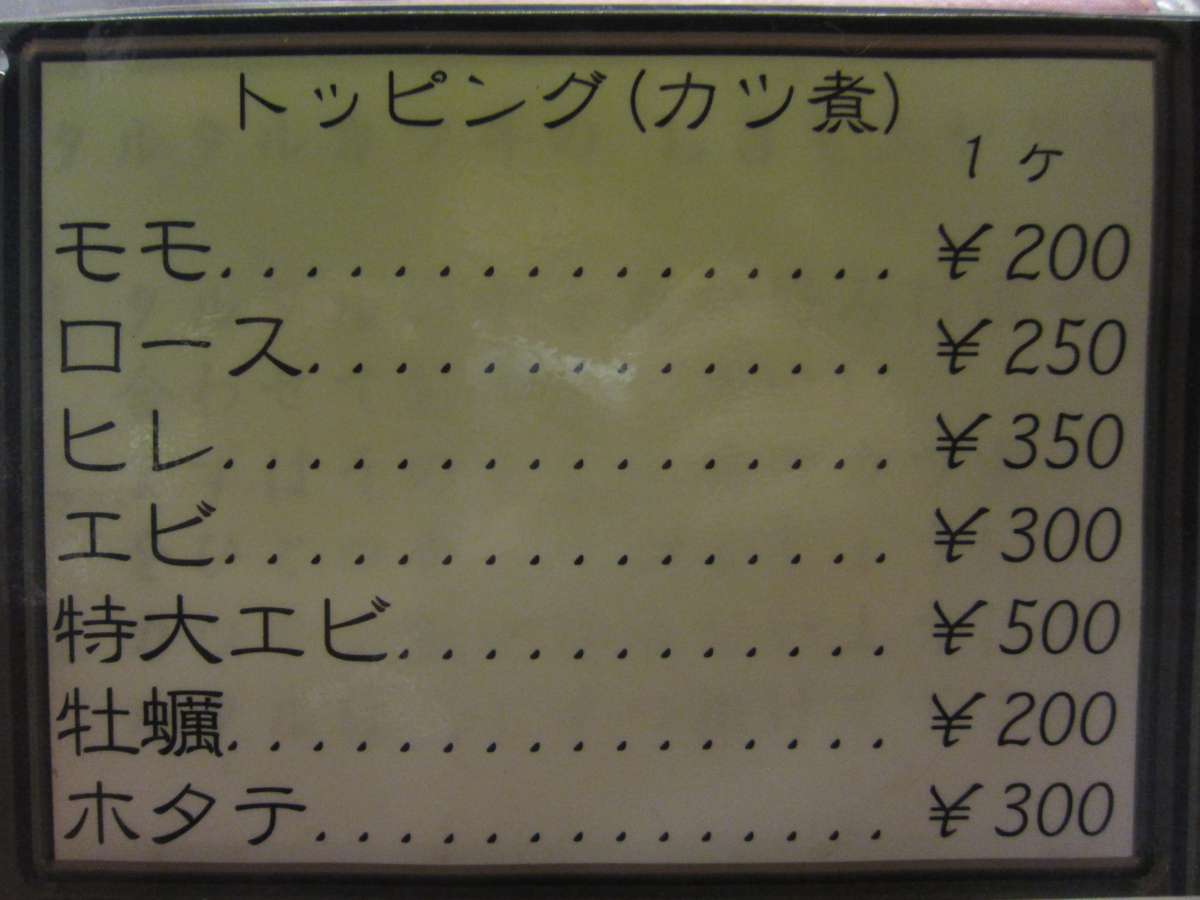 トッピング(カツ煮)
1ヶ
モモ.................... ¥200
ロース.................. ¥250
ヒレ.................... ¥350
エビ.................... ¥300
特大エビ................ ¥500
牡蠣.................... ¥200
ホタテ.................. ¥300